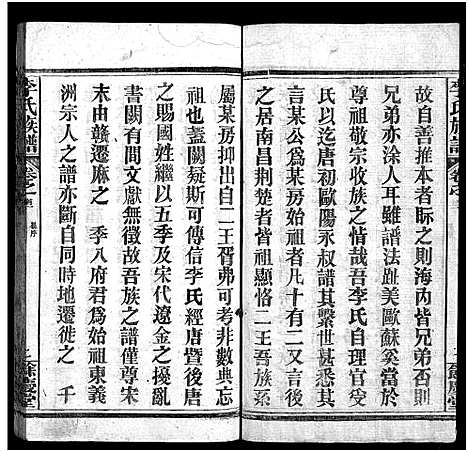 故自善推本者眎之則海內皆兄弟否則
兄弟亦涂人耳雖譜法趾美歐蘇奚當於
尊祖敬宗收族之情哉吾李氏自理官受
氏以迄唐初歐陽永叔譜其繫世甚悉其
言某公爲某房始祖者凡十有一又言某
之居南昌荆楚者某恪二王吾族系
屬某房抑出自二王胥弗可考非數典忘
祖也蓋闕疑斯可傳信李氏經唐暨後唐
之賜國姓繼以五季及宋代遼金之擾亂
書闕有間文獻無徵故吾族之譜僅尊宋
末由贛遷麻之 季八府君爲始祖東義
洲宗人之譜亦斷自同時地遷徙之 千
李氏族譜
卷之一
餘慶堂